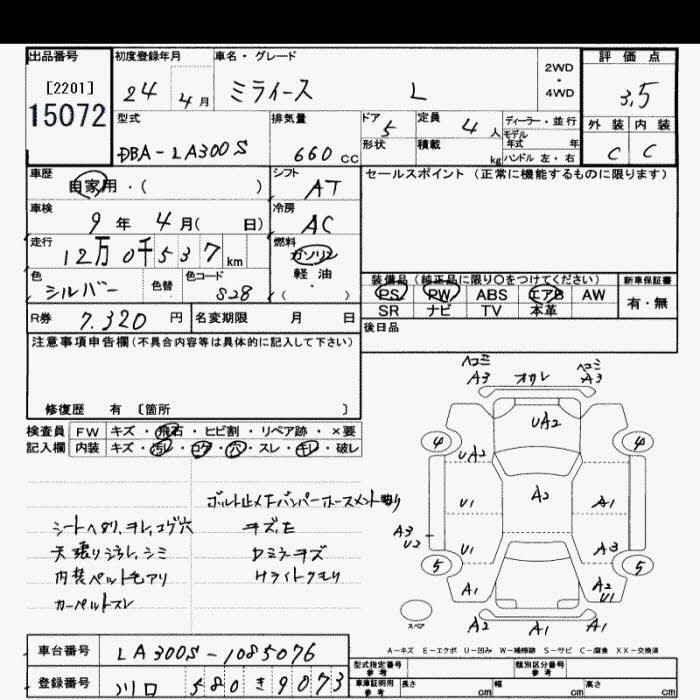 出品番号
[2201]
15072
初度登録年月
24 4月
車名・グレード
ミライース L
2WD
・
4WD
評価点
3.5
外装 内装
C C
型式
DBA-LA300S
排気量
660 cc
ドア
5
形状
定員
4 人
積載
kg
ディーラー・並行
モデル
年式 年
ハンドル 左・右
車歴
自家用・( )
シフト
AT
セールスポイント (正常に機能するものに限ります)
車検
9年 4月( 日)
冷房
AC
走行
12万0千537km
燃料
ガソリン
軽油
・
( )
色
シルバー
色替
色コード
S28
装備品 (純正品に限り○をつけてください)
PS PW ABS エアB AW
SR ナビ TV 本革
新車保証書
有・無
R券
7,320 円
名変期限 月 日
後日品
注意事項申告欄(不具合内容等は具体的に記入して下さい)
修復歴 有 [箇所 ]
検査員
記入欄
FW キズ・飛石・ヒビ割・リペア跡・×要
内装 キズ・汚レ・コゲ・穴・スレ・キレ・破レ
シートヘタリ、ヨレ、コゲ穴
内装ペルト毛アリ
カーペットスレ
キズ、モ
Dミラーキズ
Hライトクモリ
ヘコミ
A3
ヘコミ
A3
UA2
4
4
UA2
A2
U1
A1
A3
U2
U1
A3
5
5
A1
A2
U1
スペア
A2 A1 A1
A-キズ E-エクボ U-凹み W-補修跡 S-サビ C-腐食 XX-交換済
車台番号
LA300S-1085076
登録番号
川口 580 き 9073
型式指定番号
参考
類別区分番号
参考
車庫証明用
参考
長さ cm
幅 cm
高さ cm